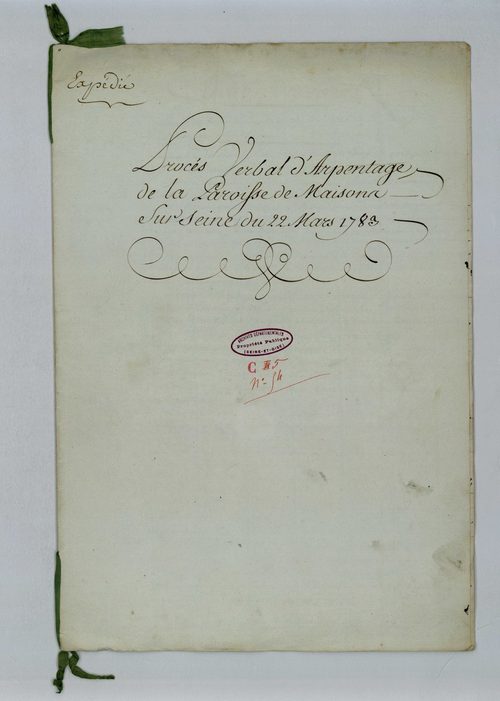 Expédié
Procés Verbal d'Arpentage
de la Paroisse de Maisons
Sur Seine du 22 Mars 1783
ARCHIVES DÉPARTEMENTALES
Propriété Publique
(SEINE-ET-OISE)
C 5
N° 54